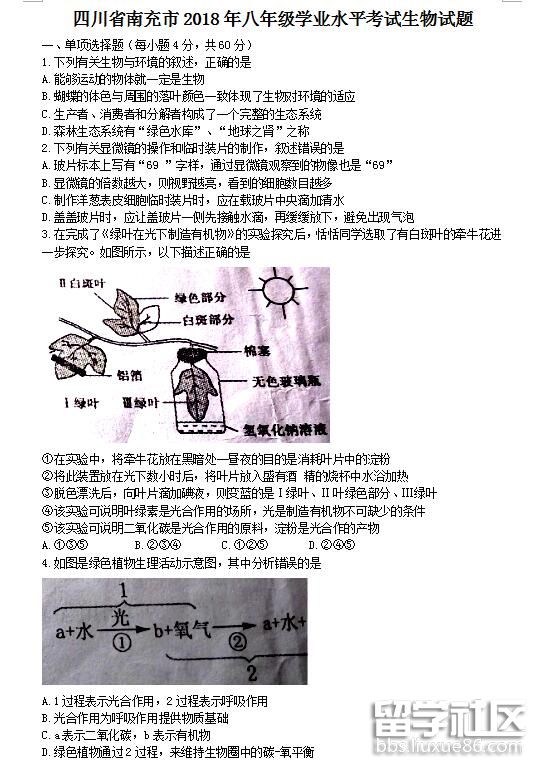 四川省南充市2018年八年级学业水平考试生物试题
一、单项选择题（每小题4分，共60分）
1.下列有关生物与环境的叙述，正确的是
A.能够运动的物体就一定是生物
B.蝴蝶的体色与周围的落叶颜色一致体现了生物对环境的适应
C.生产者、消费者和分解者构成了一个完整的生态系统
D.森林生态系统有“绿色水库”、“地球之肾”之称
2.下列有关显微镜的操作和临时装片的制作，叙述错误的是
A.玻片标本上写有“69 ”字样，通过显微镜观察到的物像也是“69”
B.显微镜的倍数越大，则视野越亮，看到的细胞数目越多
C.制作洋葱表皮细胞临时装片时，应在载玻片中央滴加清水
D.盖盖玻片时，应让盖玻片一侧先接触水滴，再缓缓放下，避免出现气泡
3.在完成了《绿叶在光下制造有机物》的实验探究后，恬恬同学选取了有白斑叶的牵牛花进
一步探究。如图所示，以下描述正确的是
II白斑叶
绿色部分
白斑部分
棉塞
铝箔
无色玻璃瓶
I绿叶
III绿叶
氢氧化钠溶液
①在实验中，将牵牛花放在黑暗处一昼夜的目的是消耗叶片中的淀粉
②将此装置放在光下数小时后，将叶片放入盛有酒 精的烧杯中水浴加热
③脱色漂洗后，向叶片滴加碘液，则变蓝的是I绿叶、II叶绿色部分、III绿叶
④该实验可说明叶绿素是光合作用的场所，光是制造有机物不可缺少的条件
⑤该实验可说明二氧化碳是光合作用的原料，淀粉是光合作的产物
A.①③⑤ B.②③④ C.①②⑤ D.②④⑤
4.如图是绿色植物生理活动示意图，其中分析错误的是
1
a+水 光 ① b+氧气 ② a+水+
2
A.1过程表示光合作用，2过程表示呼吸作用
B.光合作用为呼吸作用提供物质基础
C.a表示二氧化碳，b表示有机物
D.绿色植物通过2过程，来维持生物圈中的碳-氧平衡
留学社区
bbs.liuxue86.com